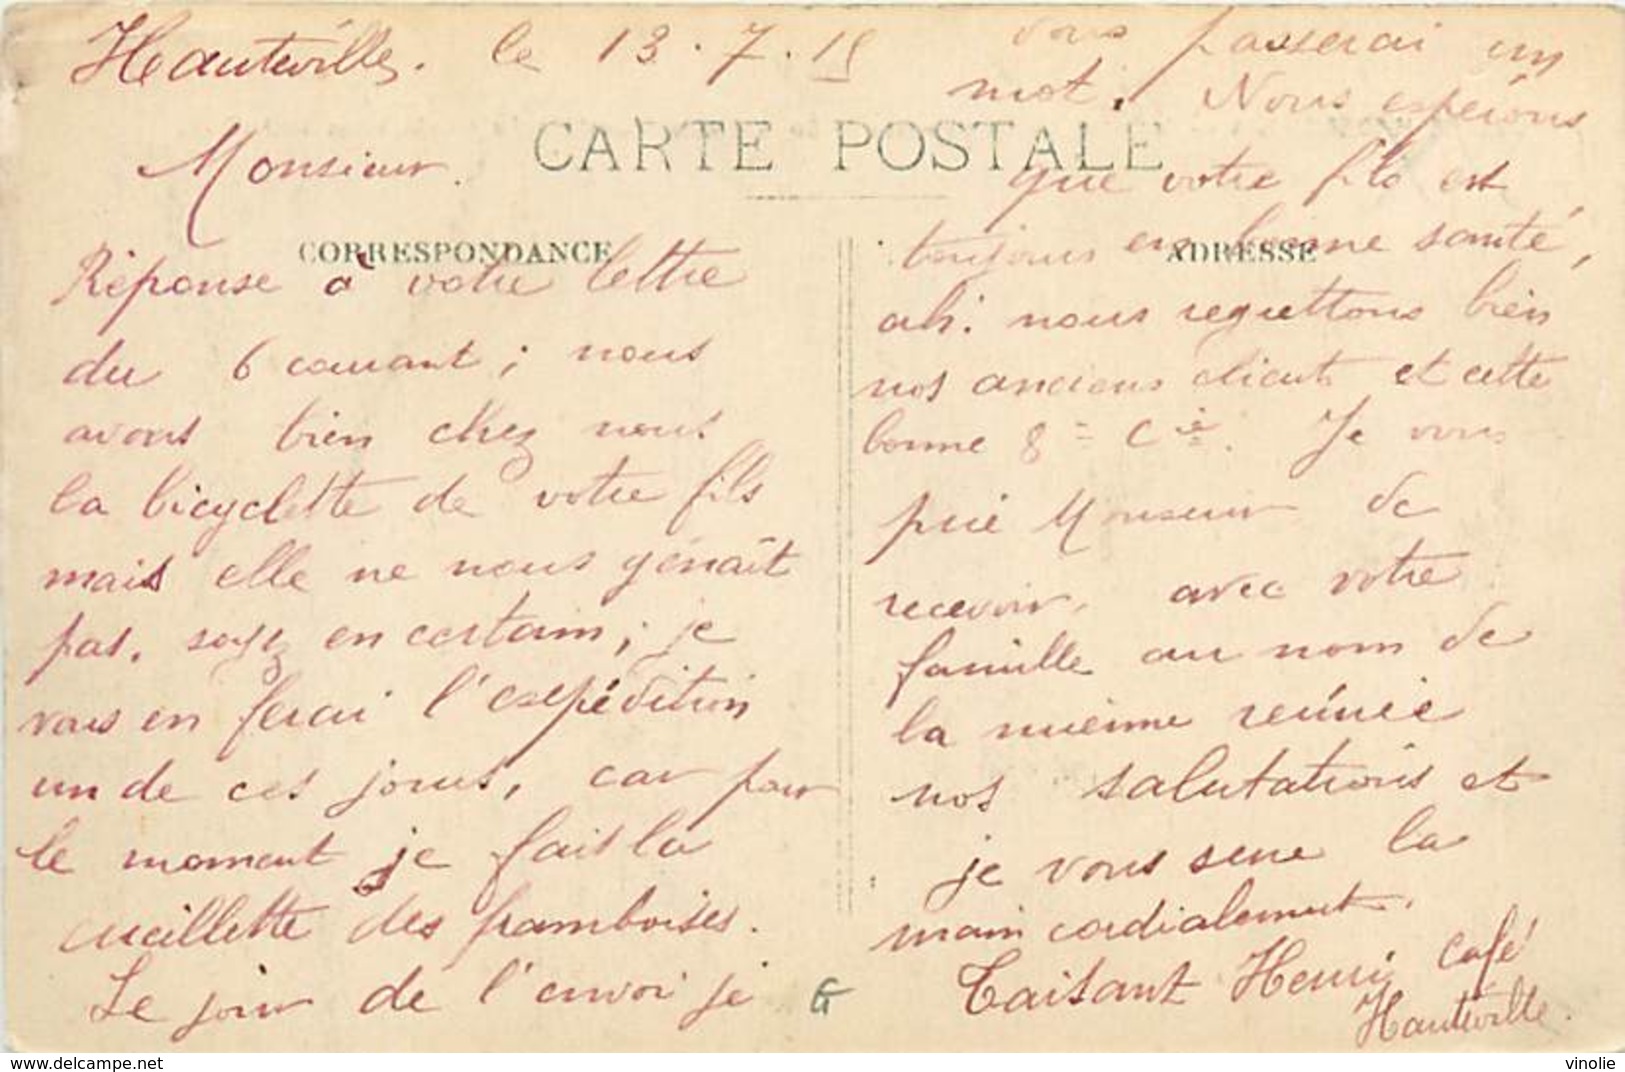 Hauteville, le 13.7.15
CARTE POSTALE
Monsieur.
CORRESPONDANCE
Réponse à votre lettre
du 6 courant; nous
avons bien chez nous
la bicyclette de votre fils
mais elle ne nous gênait
pas, soyez en certain; je
vous en ferai l'expédition
un de ces jours, car pour
le moment je fais la
cueillette des framboises.
Le jour de l'envoi je
vous passerai un
mot. Nous espérons
que votre fils est
ADRESSE
toujours en bonne santé,
ah! nous regrettons bien
nos anciens clients et cette
bonne 8= Cie. Je vous
prie Monsieur de
recevoir, avec votre
famille au nom de
la mienne réunie
nos salutations et
je vous serre la
main cordialement.
Taisant Henri café
Hauteville.
G
vinolie